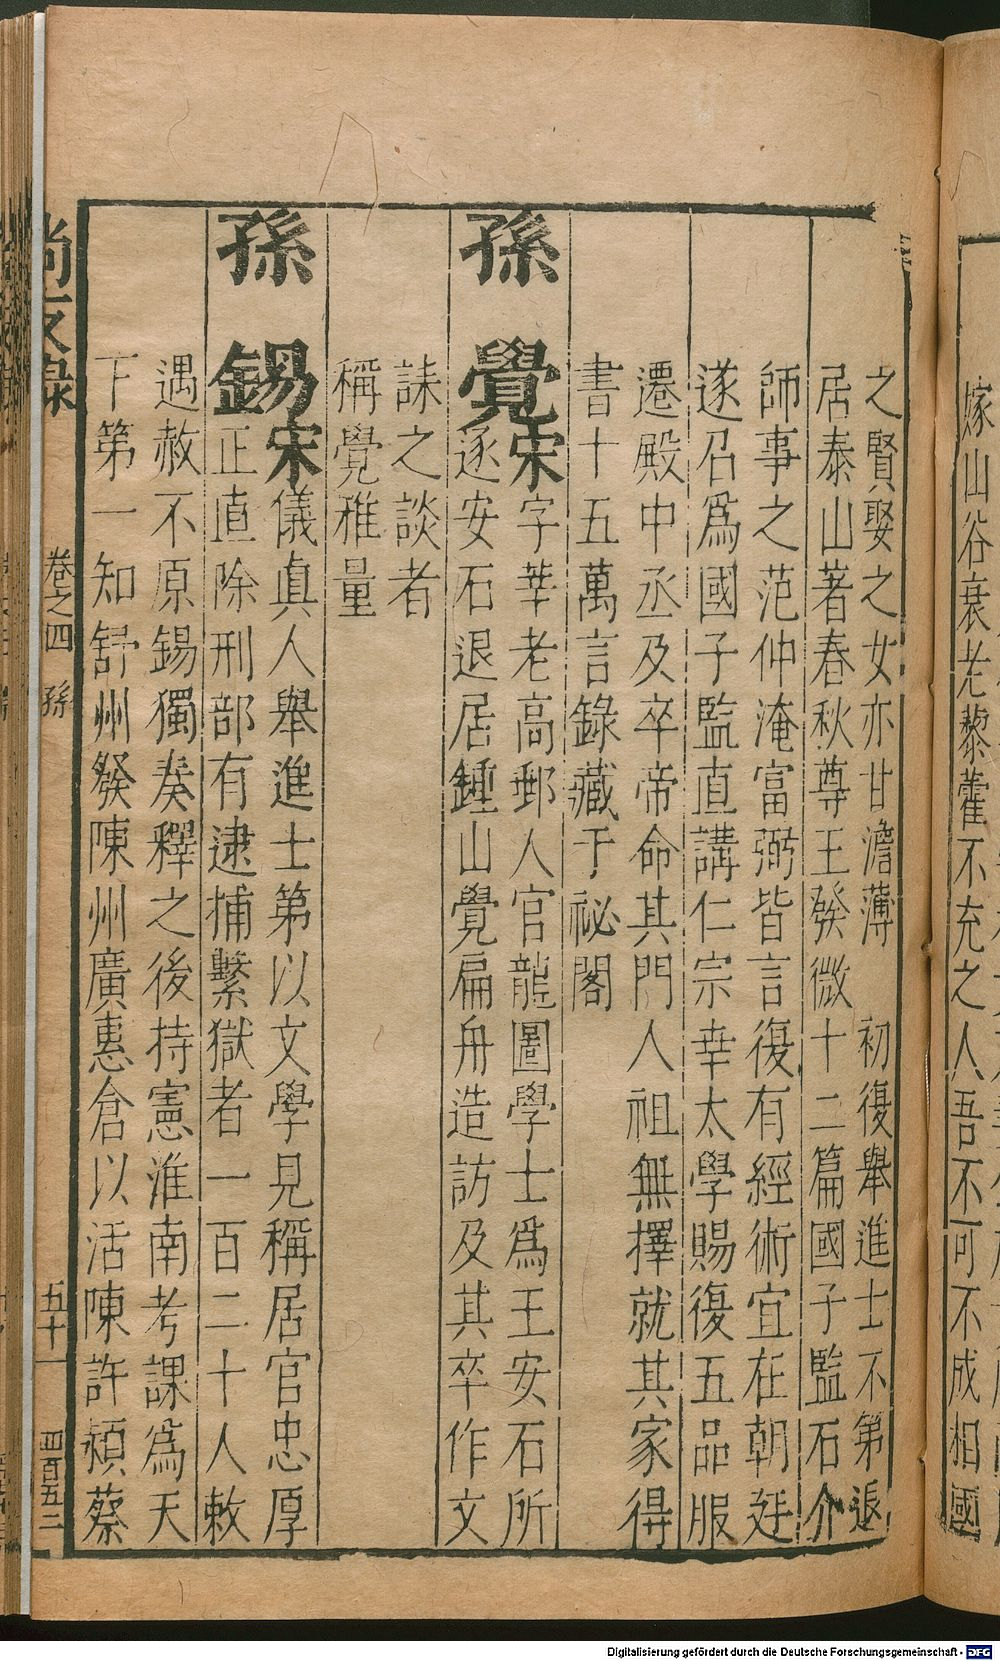 嫁山谷衰老藜藿不充之人吾不可不成相國
之賢娶之女亦甘澹薄　初復舉進士不第退
居泰山著春秋尊王發微十二篇國子監石介
師事之范仲淹富弼皆言復有經術宜在朝廷
遂召爲國子監直講仁宗幸太學賜復五品服
遷殿中丞及卒帝命其門人祖無擇就其家得
書十五萬言錄藏于祕閣
孫　覺宋字莘老高郵人官龍圖學士爲王安石所
逐安石退居鍾山覺扁舟造訪及其卒作文
誄之談者
稱覺雅量
孫　錫宋儀眞人舉進士第以文學見稱居官忠厚
正直除刑部有逮捕繫獄者一百二十人敕
遇赦不原錫獨奏釋之後持憲淮南考課爲天
下第一知舒州發陳州廣惠倉以活陳許潁蔡
尚友錄　卷之四　孫　五十一　四百五二
Digitalisierung gefördert durch die Deutsche Forschungsgemeinschaft - DFG